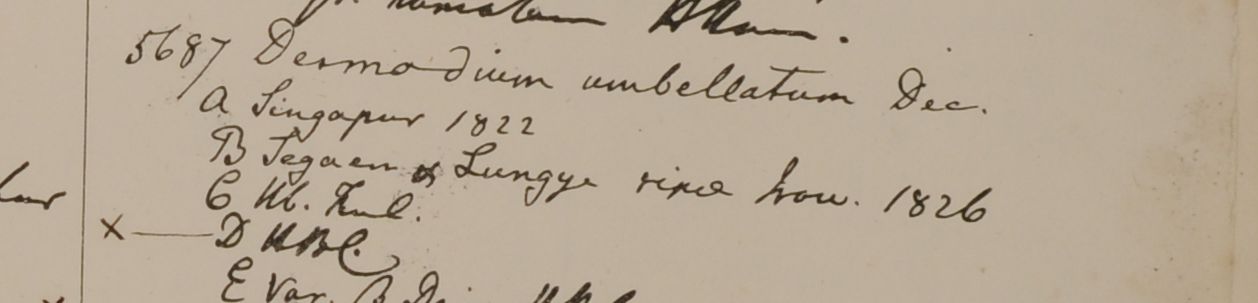 5687 Desmodium umbellatum Dec.
A Singapur 1822
B Segaen & Lungye ripae Irow. 1826
C Hb.
D HBC.
E Var. B